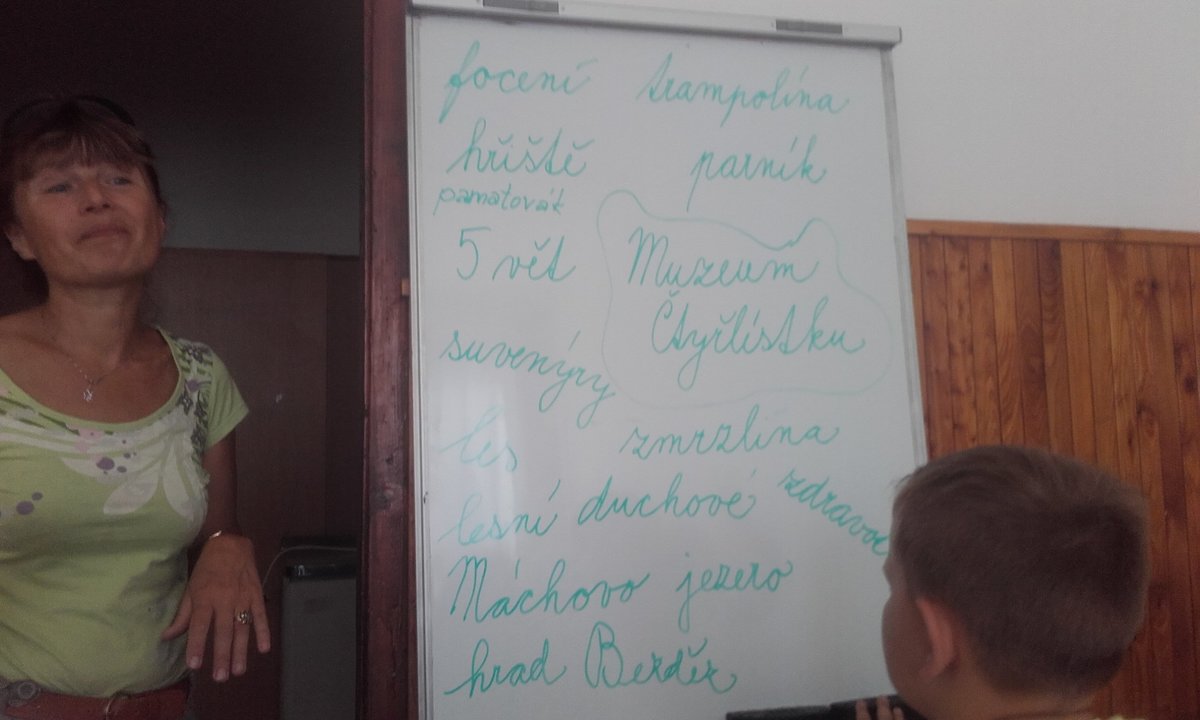 focení trampolína
hřiště parník
pamatovák
5 vět Muzeum
Čtyřlístku
suvenýry
les zmrzlina
lesní duchové
Máchovo jezero
hrad Bezděz